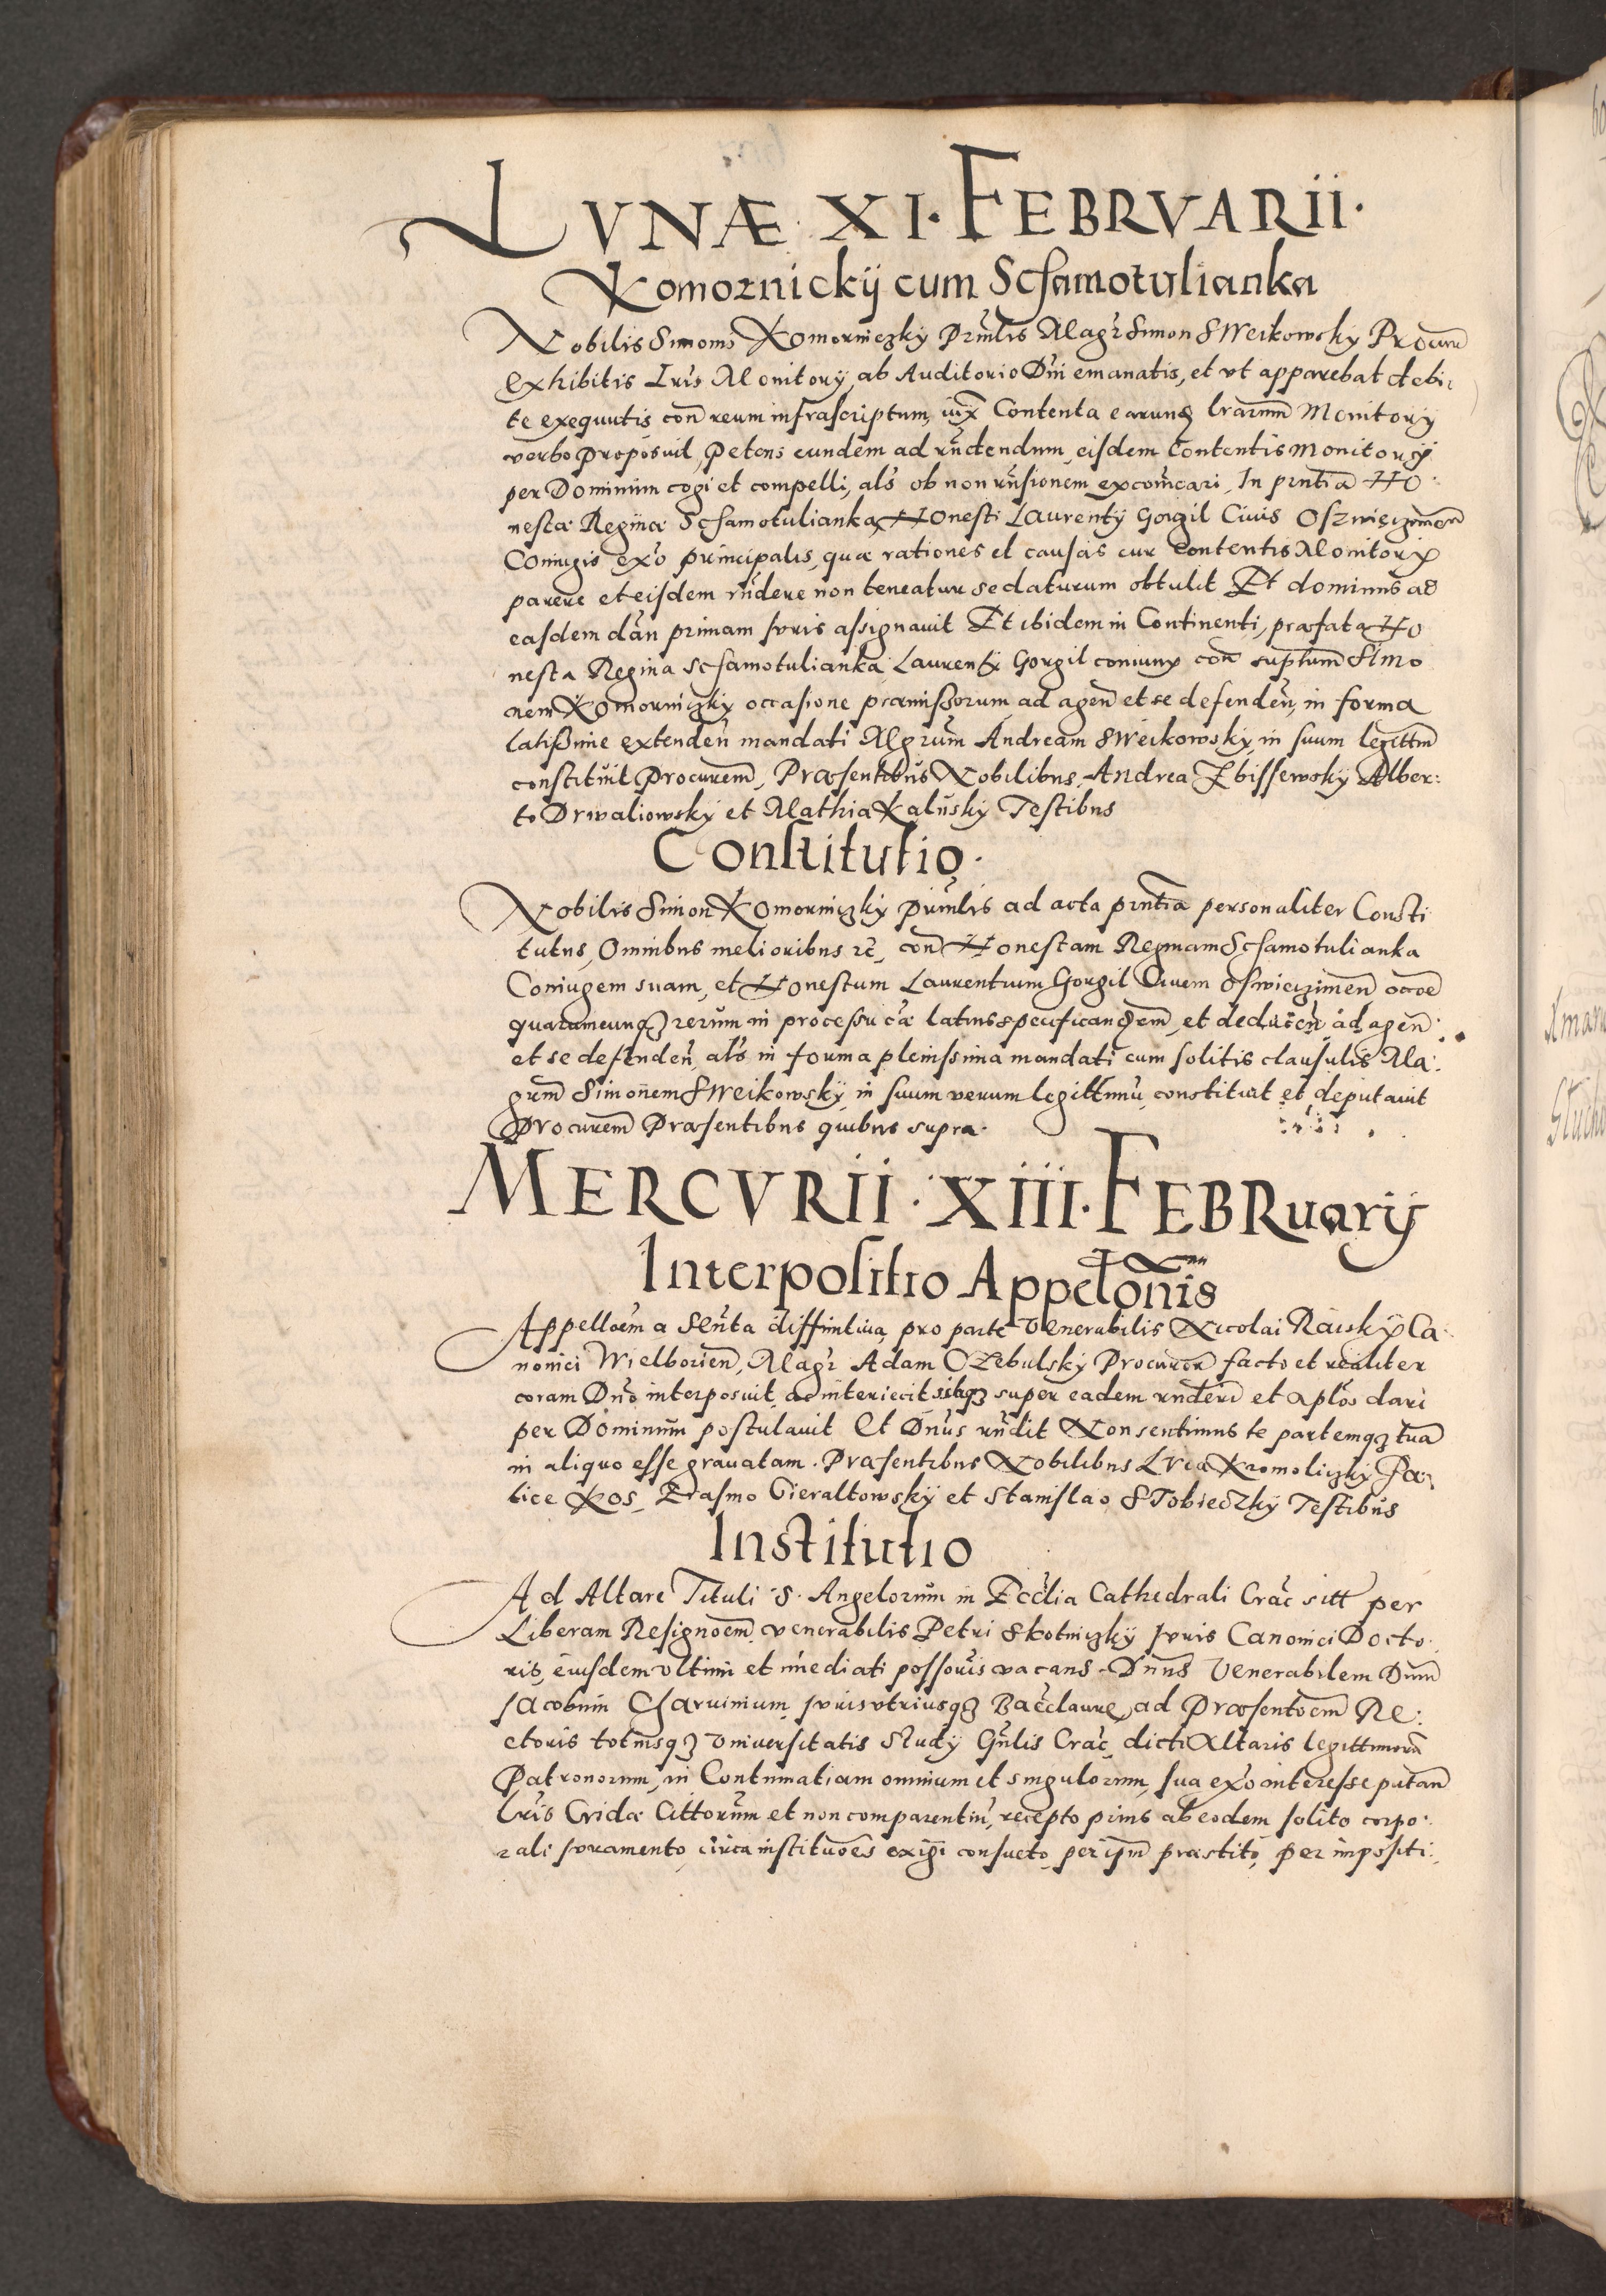 LVNÆ XI. FEBRVARII.
Komornickÿ cum Schamotulianka
Nobilis Simonis Komorniczky Prinlis Magr Simon SWeikowsky Procur
exhibitis Lris Monitorÿ, ab Auditorio Dni emanatis, et vt apparebat debi
te exequutis con reum infrascriptum, iux Contenta earunq lrarum Monitorÿ
verbo proposuit, Petens eundem ad rndendum, eisdem Contentis Monitorÿ
per Dominum cogi et compelli, als ob non rnsionem excoicari, In pntia Ho
nestæ Reginæ Schamotulianka, Honesti Laurentÿ Gorgil Ciuis Oszwięczimen
Coniugis exo principalis, quæ rationes et causas cur Contentis Monitorÿ
parere et eisdem rndere non teneatur se daturum obtulit Et dominus ad
easdem dan primam Juris assignauit Et ibidem in Continenti, præfata Ho
nesta Regina Schamotulianka Laurentÿ Gorgil coniunx con suptum Simo
nem Komorniczky occasione præmissorum, ad agen et se defenden, in forma
latissime extenden mandati Mgrum Andream SWeikowsky, in suum legittm
constituit Procurem, Præsentibus Nobilibus, Andrea Zbissewsky Alber:
to Drwaliowsky et Mathia Kalusky Testibus
Constitutio.
Nobilis Simon Komorniczky prinlis ad acta pntia personaliter Consti
tutus, Omnibus melioribus rc, con Honestam Reginam Schamotulianka
Coniugem suam, et Honestum Laurentium Gorgil Ciuem Oswieczimen occoe
quarumcunq rerum in processu cæ latius specificand em, et deducen, ad agen
et se defenden, als in forma plenissima mandati cum solitis clausulis Ma:
grm Simonem SWeikowsky, in suum verum legittmu, constituit et deputauit
Procurem Præsentibus quibus supra.
MERCVRII. XIII. FEBRuarÿ
Interpositio Appelonis
Appelloem a Senta diffinitiua, pro parte Venerabilis Nicolai Raisky Ca
nonici Wielborien, Magr Adam OZebulsky Procurem facto et realiter
coram Dno interposuit, ac interiecit sibiq super eadem rnderi et aplos dari
per Dominum postulauit Et Dnus rndit Non sentimus te partemq tua
in aliquo esse grauatam. Præsentibus Nobilibus Lvca Kromoliczky Fæ
lice Kos, Erasmo Gieraltowsky et Stanislao STobieczky Testibus
Institutio
Ad Altare Tituli S. Angelorum in Ecclia Cathedrali Crac sitt per
Liberam Resignoem venerabilis Petri Skotniczky Juris Canonici Docto
ris, eiusdem vltimi et imediati possoris vacans. Dnns Venerabilem Dnm
Jacobum Charuinium Juris vtriusq Bacclaure, ad Præsentoem Re:
ctoris totiusq Vniuersitatis Study Gnlis Crac, dicti Altaris legittimoru
Patronorum, in Contumatiam omnium et singulorum, sua exo interesse putan
Lris Cridæ Cittorum et non comparentiu, recepto prius ab eodem solito corpo
rali Juramento, circa institutoes exigi consueto, per ipm præstito, per impositi